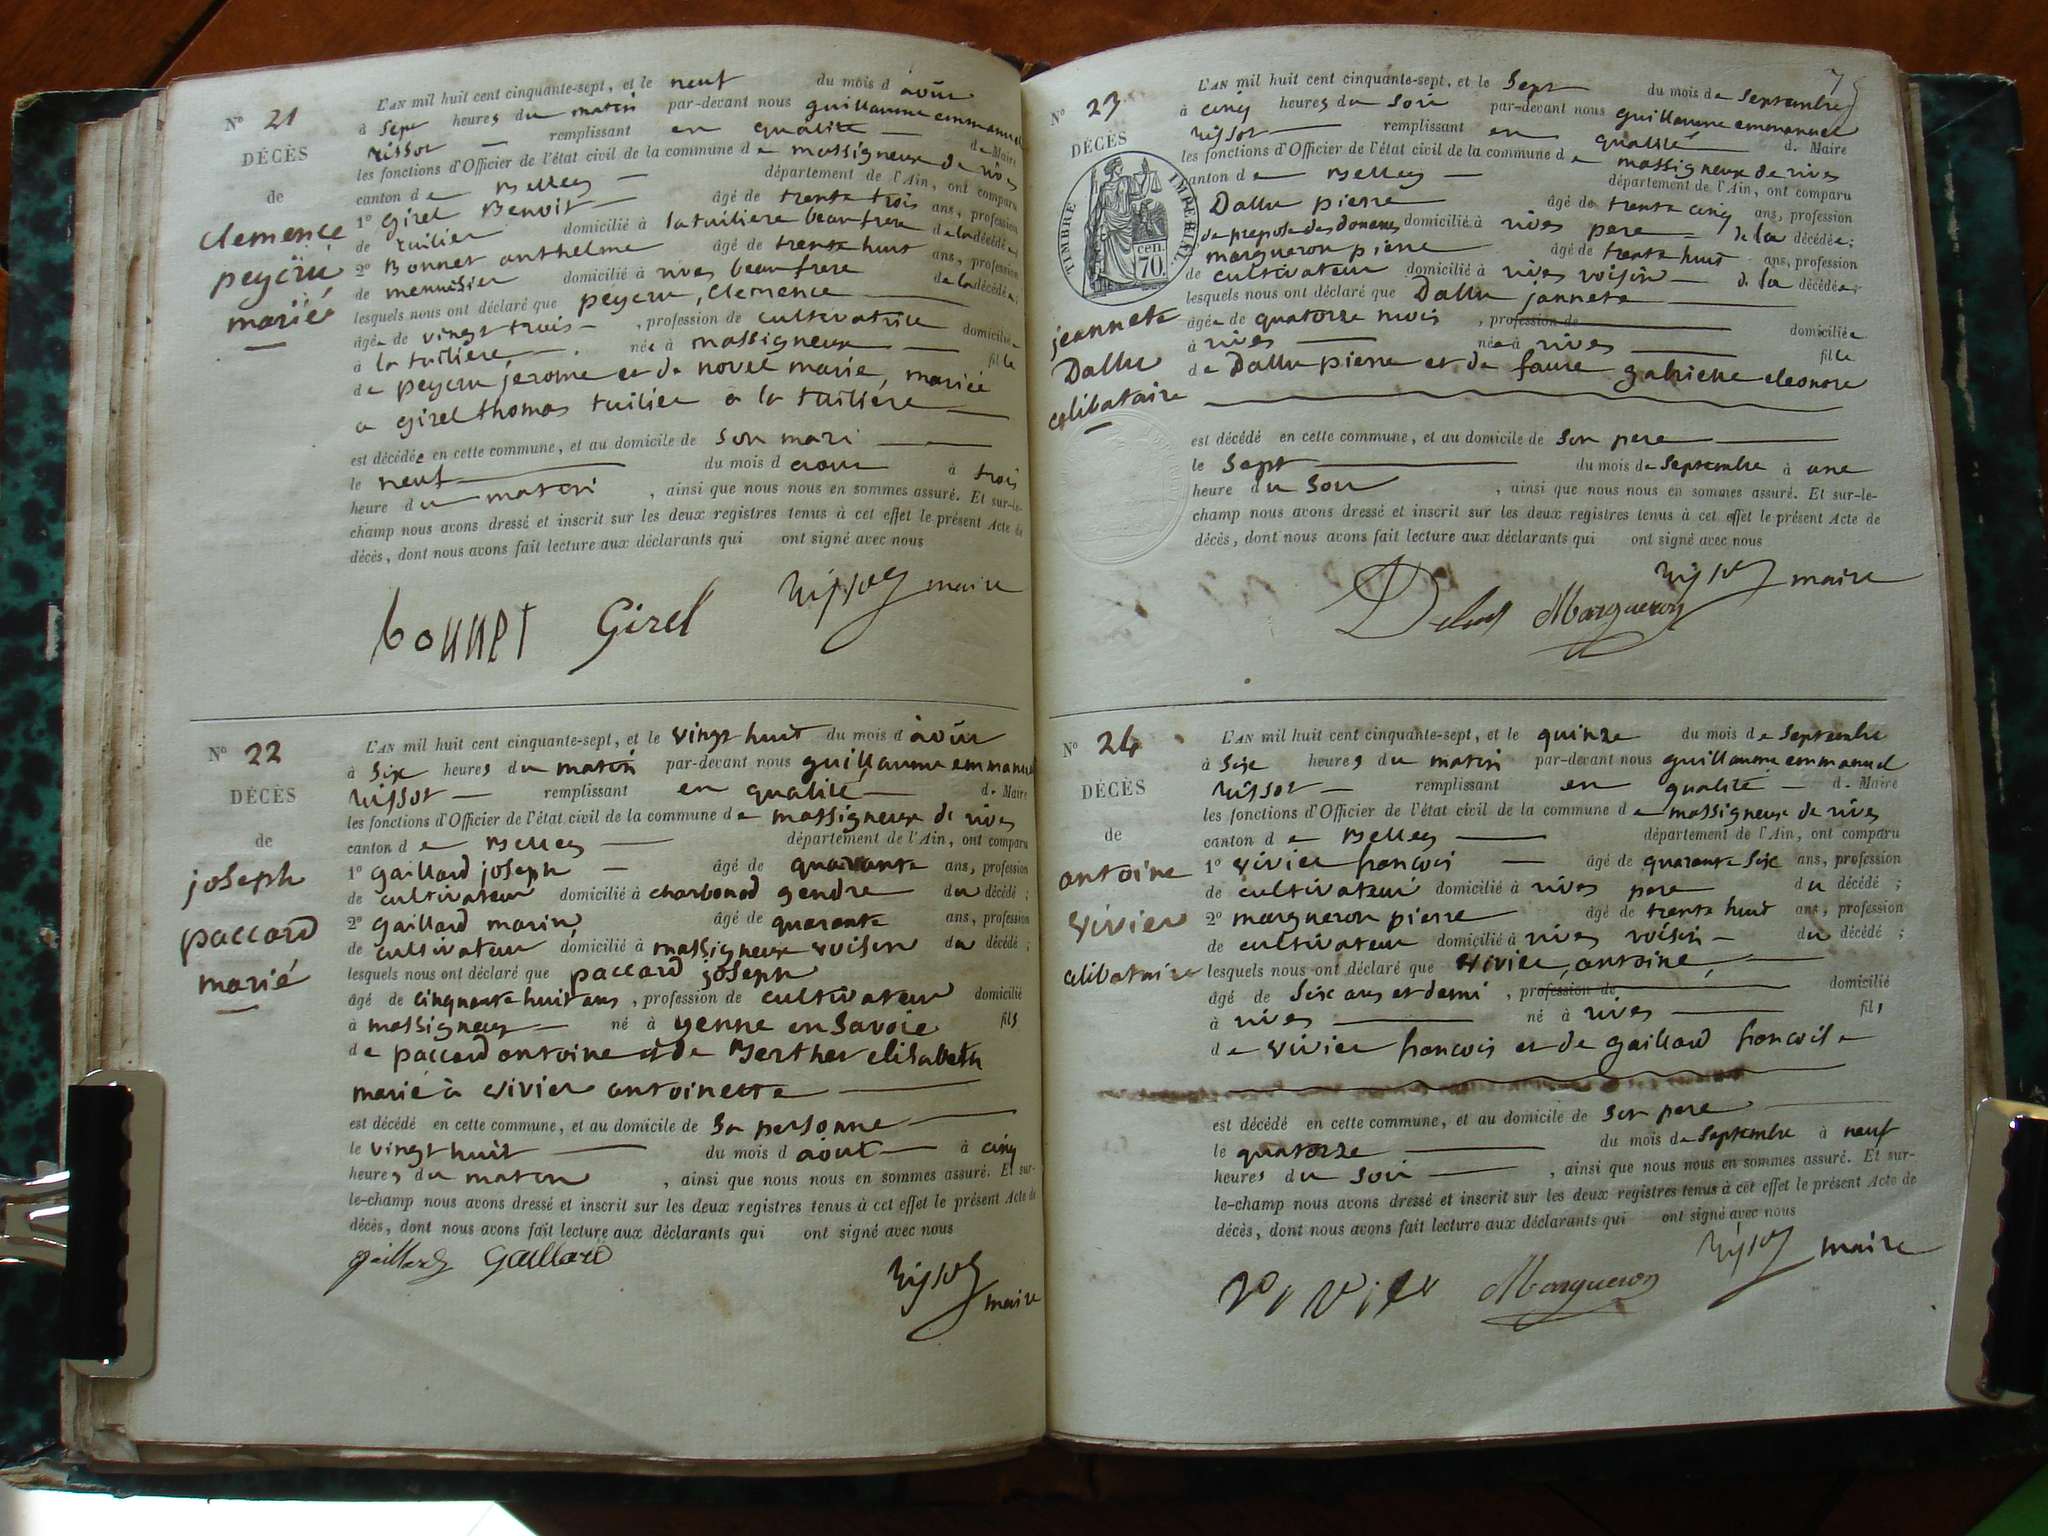 N° 21
DÉCÈS
de
Clemence
peycru
mariée
L'AN mil huit cent cinquante-sept, et le neuf du mois d août
à Sept heures du matin par-devant nous guillaume emmanuel
rissot — remplissant en qualité — de Maire
les fonctions d'Officier de l'état civil de la commune de massigneux de rives
canton de Belley — département de l'Ain, ont comparu
1° Girel Benoit — âgé de trente trois ans, profession
de tuilier domicilié à la tuiliere beau frere de la décédée
2° Bonnet anthelme âgé de trente huit ans, profession
de menuisier domicilié à rives beau frere de la décédée;
lesquels nous ont déclaré que peycru, Clemence —
âgée de vingt trois —, profession de cultivatrice domiciliée
à la tuiliere, — née à massigneux — fille
de peycru jerome et de novel marie, mariée
a girel thomas tuilier a la tuiliere —
est décédée en cette commune, et au domicile de Son mari —
le neuf — du mois d aout à trois
heure du matin, ainsi que nous nous en sommes assuré. Et sur-le-
champ nous avons dressé et inscrit sur les deux registres tenus à cet effet le présent Acte de
décès, dont nous avons fait lecture aux déclarants qui ont signé avec nous
bonnet Girel rissot maire
N° 22
DÉCÈS
de
joseph
paccard
marié
L'AN mil huit cent cinquante-sept, et le vingt huit du mois d août
à Six heures du matin par-devant nous guillaume emmanuel
rissot — remplissant en qualité — de Maire
les fonctions d'Officier de l'état civil de la commune de massigneux de rives
canton de Belley — département de l'Ain, ont comparu
1° gaillard joseph — âgé de quarante ans, profession
de cultivateur domicilié à charbonod gendre du décédé;
2° gaillard marin, âgé de quarante ans, profession
de cultivateur domicilié à massigneux voisin du décédé;
lesquels nous ont déclaré que paccard joseph
âgé de cinquante huit ans, profession de cultivateur domicilié
à massigneux — né à yenne en Savoie fils
de paccard antoine et de Berthet elisabeth
marié à vivier antoinette —
est décédé en cette commune, et au domicile de Sa personne —
le vingt huit — du mois d août — à cinq
heures du matin, ainsi que nous nous en sommes assuré. Et sur-
le-champ nous avons dressé et inscrit sur les deux registres tenus à cet effet le présent Acte de
décès, dont nous avons fait lecture aux déclarants qui ont signé avec nous
gaillard Gaillard rissot
maire
N° 23
DÉCÈS
TIMBRE IMPERIAL
cen.
70.
jeannete
Dallu
celibataire
L'AN mil huit cent cinquante-sept, et le Sept du mois de Septembre
à cinq heures du Soir par-devant nous guillaume emmanuel
rissot — remplissant en qualité — de Maire
les fonctions d'Officier de l'état civil de la commune de massigneux de rives
canton de Belley — département de l'Ain, ont comparu
Dallu pierre — âgé de trente cinq ans, profession
de prepose des douanes domicilié à rives pere — de la décédée;
margueron pierre âgé de trente huit ans, profession
de cultivateur domicilié à rives voisin — de la décédée;
lesquels nous ont déclaré que Dallu jannete —
âgée de quatorze mois, profession de — domiciliée
à rives — née à rives — fille
de Dallu pierre et de faure gabrielle eleonore
est décédé en cette commune, et au domicile de Son pere —
le Sept — du mois de Septembre à une
heure du Soir, ainsi que nous nous en sommes assuré. Et sur-le-
champ nous avons dressé et inscrit sur les deux registres tenus à cet effet le présent Acte de
décès, dont nous avons fait lecture aux déclarants qui ont signé avec nous
Margueron rissot maire
N° 24
DÉCÈS
de
antoine
vivier
celibataire
L'AN mil huit cent cinquante-sept, et le quinze du mois de Septembre
à Six heures du matin par-devant nous guillaume emmanuel
rissot — remplissant en qualité — de Maire
les fonctions d'Officier de l'état civil de la commune de massigneux de rives
canton de Belley — département de l'Ain, ont comparu
1° vivier francois — âgé de quarante Six ans, profession
de cultivateur domicilié à rives pere du décédé;
2° margueron pierre âgé de trente huit ans, profession
de cultivateur domicilié à rives voisin — du décédé;
lesquels nous ont déclaré que vivier, antoine, —
âgé de Six ans et demi, profession de — domicilié
à rives — né à rives — fils
de vivier francois et de gaillard francoise
est décédé en cette commune, et au domicile de Son pere —
le quatorze — du mois de Septembre à neuf
heures du Soir —, ainsi que nous nous en sommes assuré. Et sur-
le-champ nous avons dressé et inscrit sur les deux registres tenus à cet effet le présent Acte de
décès, dont nous avons fait lecture aux déclarants qui ont signé avec nous
Margueron rissot maire